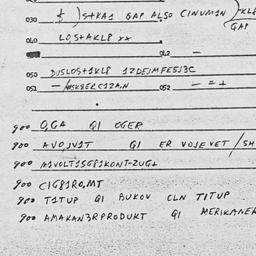 030 )S+KA1 GAP ALSO CINUM1N
GAP
040 LO,S+AKLP xx
042 —
050 DUSLOS+1KL8 1ZDEJMFE5J3C
051 — 052 — = +
900 O,GA Q1 OGER
900 AVO,JV1T Q1 ER VOJEVET / SH
900 M1VOLT1SG81KONT-ZUG+
900 C1G81RO,MT
900 T1TUP Q1 BUKOV CLN TITUP
900 AMAKAN3RPRODUKT Q1 MERIKANER